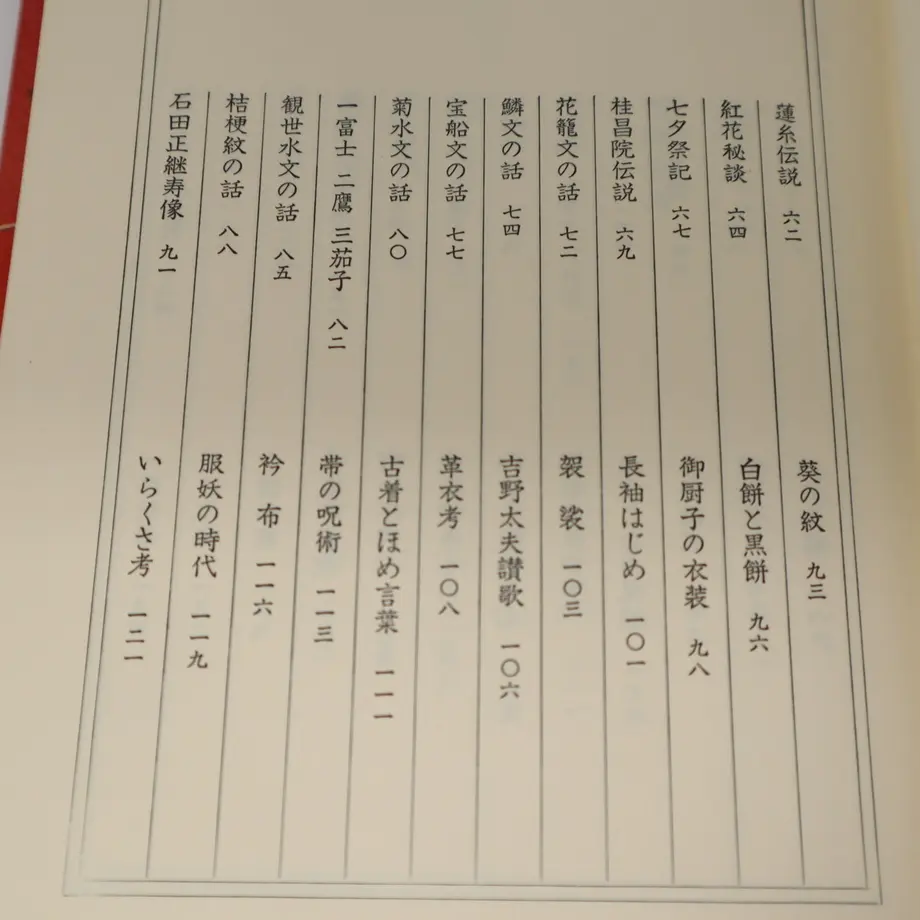 蓮糸伝説 六二
紅花秘談 六四
七夕祭記 六七
桂昌院伝説 六九
花籠文の話 七二
鱗文の話 七四
宝船文の話 七七
菊水文の話 八〇
一富士 二鷹 三茄子 八二
観世水文の話 八五
桔梗紋の話 八八
石田正継寿像 九一
葵の紋 九三
白餅と黒餅 九六
御厨子の衣装 九八
長袖はじめ 一〇一
袈裟 一〇三
吉野太夫讃歌 一〇六
革衣考 一〇八
古着とほめ言葉 一一一
帯の呪術 一一三
衿布 一一六
服妖の時代 一一九
いらくさ考 一二一